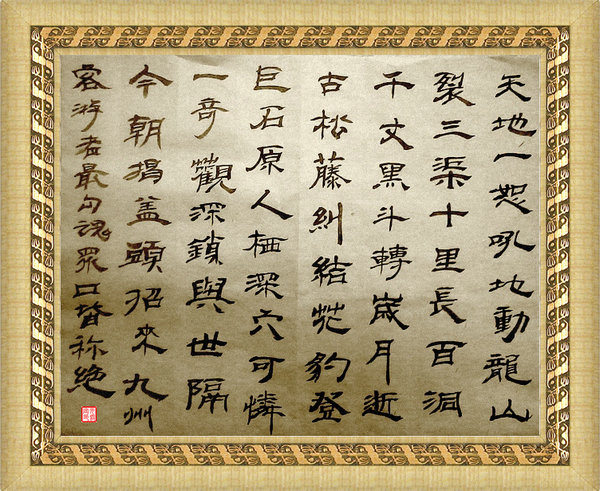 天地一怒吼地動龍山
裂三渠十里長百洞
千丈黑斗轉歲月逝
古松藤糾結花豹登
巨石原人栖深穴可憐
一奇觀深鎖與世隔
今朝揭盖頭招來九州
客游者最勾魂眾口皆称絶